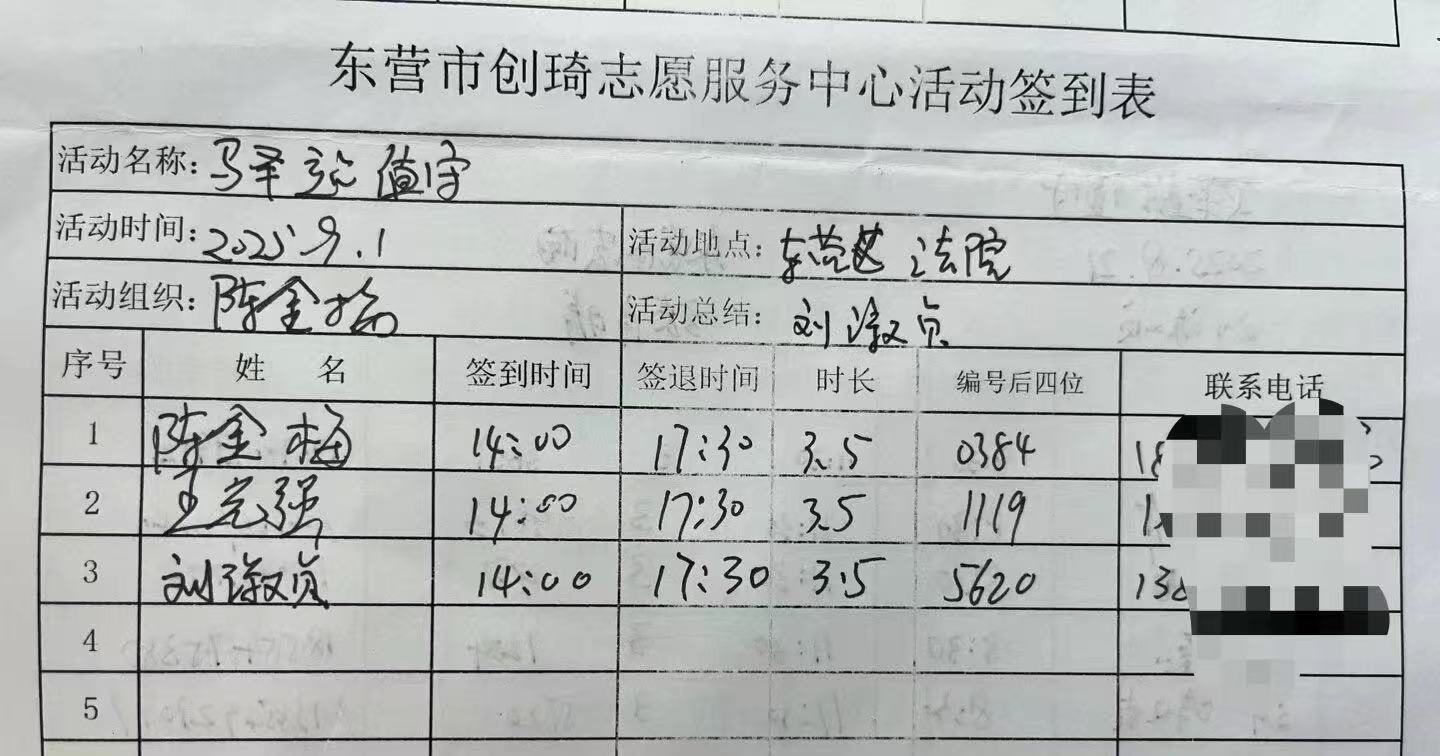 东营市创琦志愿服务中心活动签到表
活动名称：马泽 值守
活动时间：2025.9.1 活动地点：东营区法院
活动组织：陈金梅 活动总结：刘淑贞
序号 姓名 签到时间 签退时间 时长 编号后四位 联系电话
1 陈金梅 14:00 17:30 3.5 0384 18
2 王克强 14:00 17:30 3.5 1119 1
3 刘淑贞 14:00 17:30 3.5 5620 138
4
5